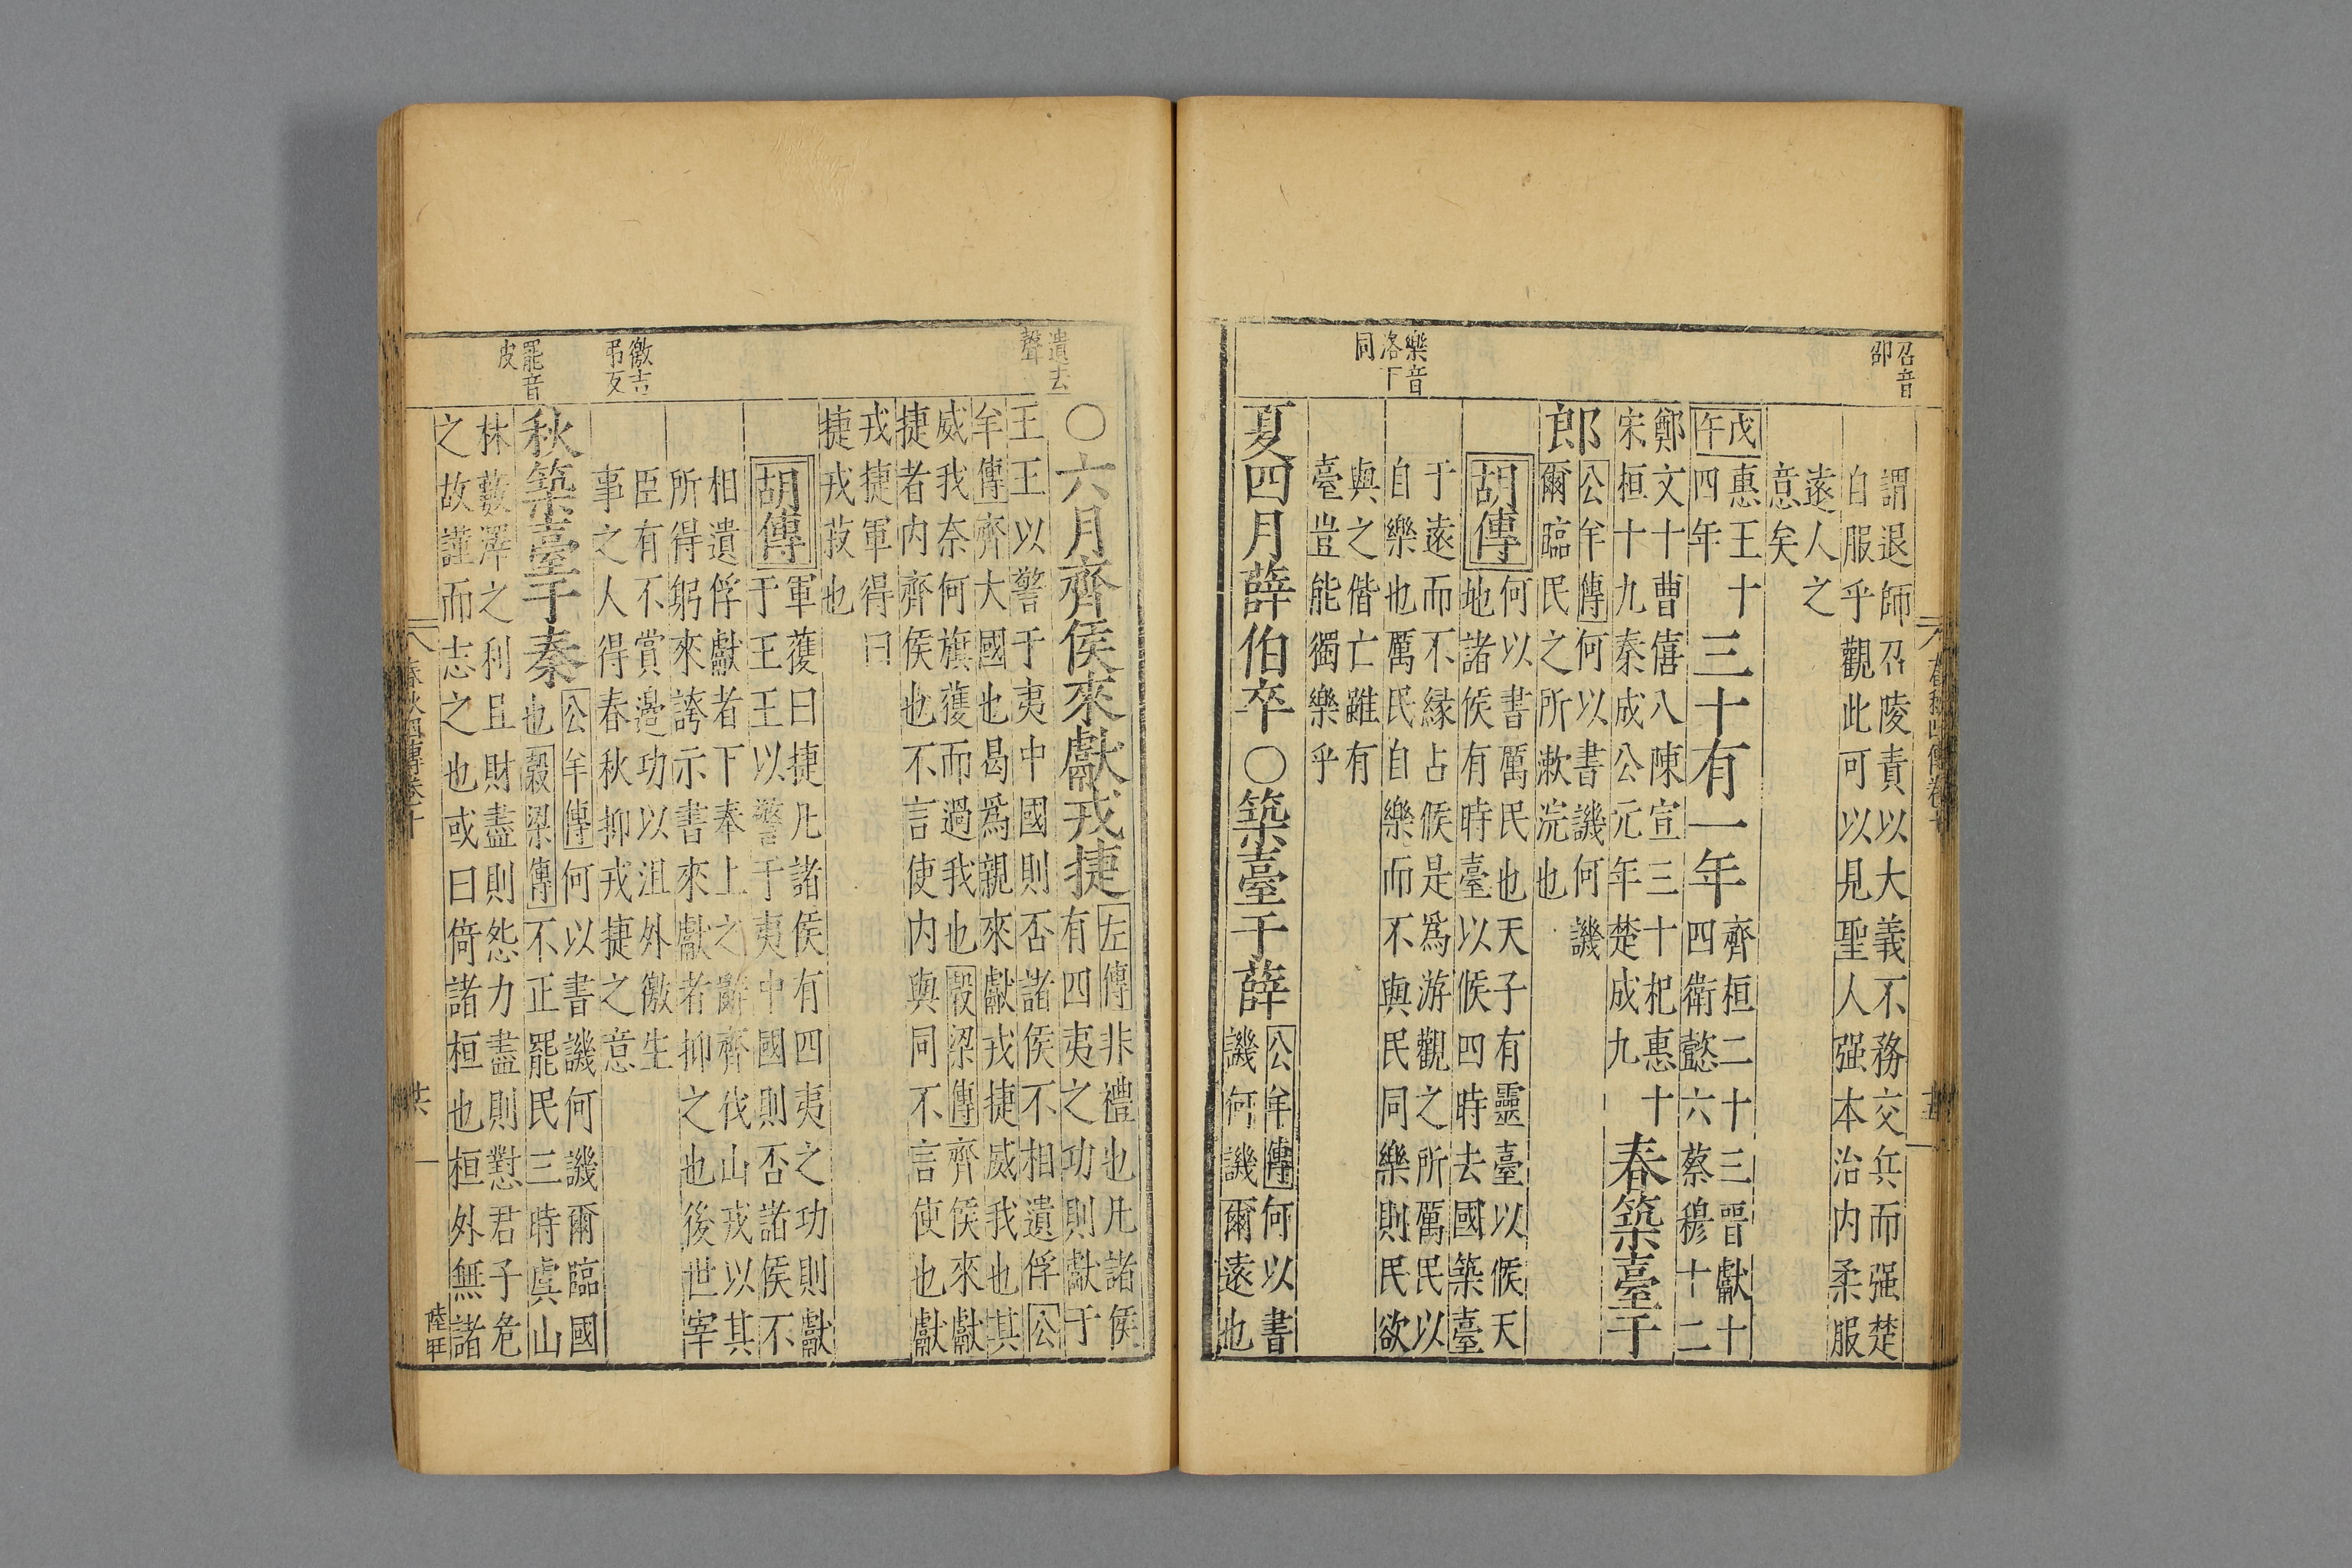 召音
邵
樂音
洛下
同
謂退師召陵責以大義不務交兵而强楚
自服乎觀此可以見聖人强本治内柔服
遠人之
意矣
戊午
惠王十
四年
三十有一年
齊桓二十三晉獻十
四衛懿六蔡穆十二
鄭文十曹僖八陳宣三十杞惠十
宋桓十九秦成公元年楚成九
春築臺于
郎
公羊傳何以書譏何譏
爾臨民之所漱浣也
胡傳
何以書厲民也天子有靈臺以候天
地諸侯有時臺以候四時去國築臺
于遠而不緣占候是爲游觀之所厲民以
自樂也厲民自樂而不與民同樂則民欲
與之偕亡雖有
臺豈能獨樂乎
夏四月薛伯卒○築臺于薛
公羊傳何以書
譏何譏爾遠也
遺去
聲
徼吉
弔反
罷音
皮
○六月齊侯來獻戎捷
左傳非禮也凡諸侯
有四夷之功則獻于
王王以警于夷中國則否諸侯不相遺俘公
羊傳齊大國也曷爲親來獻戎捷威我也其
威我奈何旗獲而過我也穀梁傳齊侯來獻
捷者内齊侯也不言使内與同不言使也獻
戎捷軍得曰
捷戎菽也
胡傳
軍獲曰捷凡諸侯有四夷之功則獻
于王王以警于夷中國則否諸侯不
相遺俘獻者下奉上之辭齊伐山戎以其
所得躬來誇示書來獻者抑之也後世宰
臣有不賞邊功以沮外徼生
事之人得春秋抑戎捷之意
秋築臺于秦
公羊傳何以書譏何譏爾臨國
也穀梁傳不正罷民三時虞山
林藪澤之利且財盡則怨力盡則懟君子危
之故謹而志之也或曰倚諸桓也桓外無諸
春秋四傳卷十